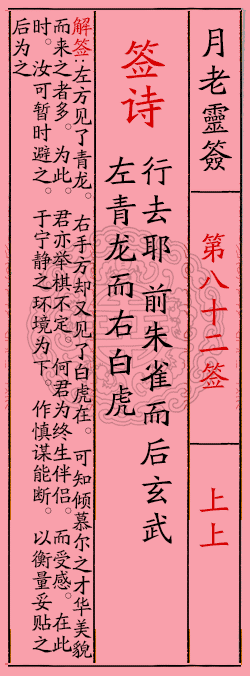 月老靈簽
第八十二签
上上
签诗
行去耶 前朱雀而后玄武
左青龙而右白虎
解签:左方见了青龙。右手方却又见了白虎在。可知倾慕尔之才华美貌
而来之者多。为此。君亦举棋不定。何君为终生伴侣。而受感。在此
时。汝可暂时避之。于宁静之环境为下。作慎谋能断。以衡量妥贴之
后为之